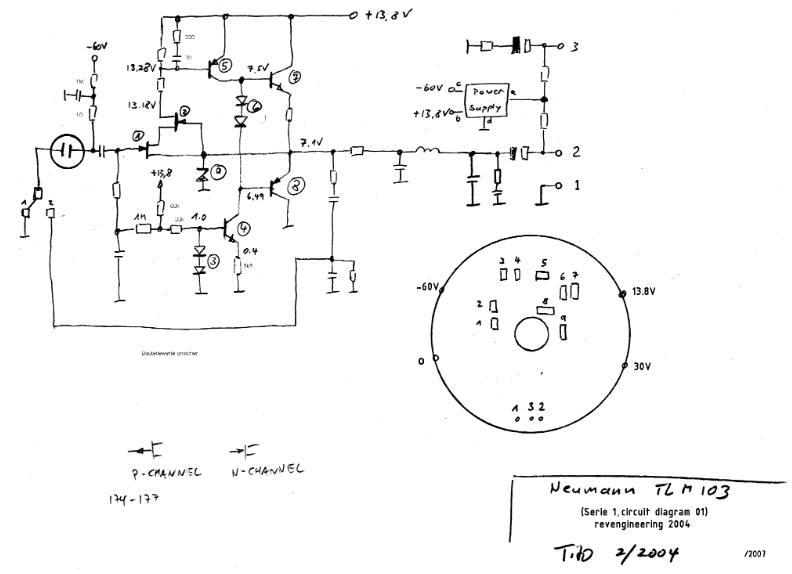 +13,8V
220
-60V
1M
1G
13.28V
13.18V
5
7.5V
7
6
2
1
9
7.1V
+13,8
1M
1.0
4
3
0.4
6.49
8
1
2
3
-60V
c
Power
Supply
a
+13,8V
b
d
2
1
-60V
13.8V
30V
0
3 4 5
6 7
2
1
8
9
1 3 2
P-CHANNEL N-CHANNEL
174-177
Neumann TLM103
(Serie 1, circuit diagram 01)
revengineering 2004
2/2004
/2007